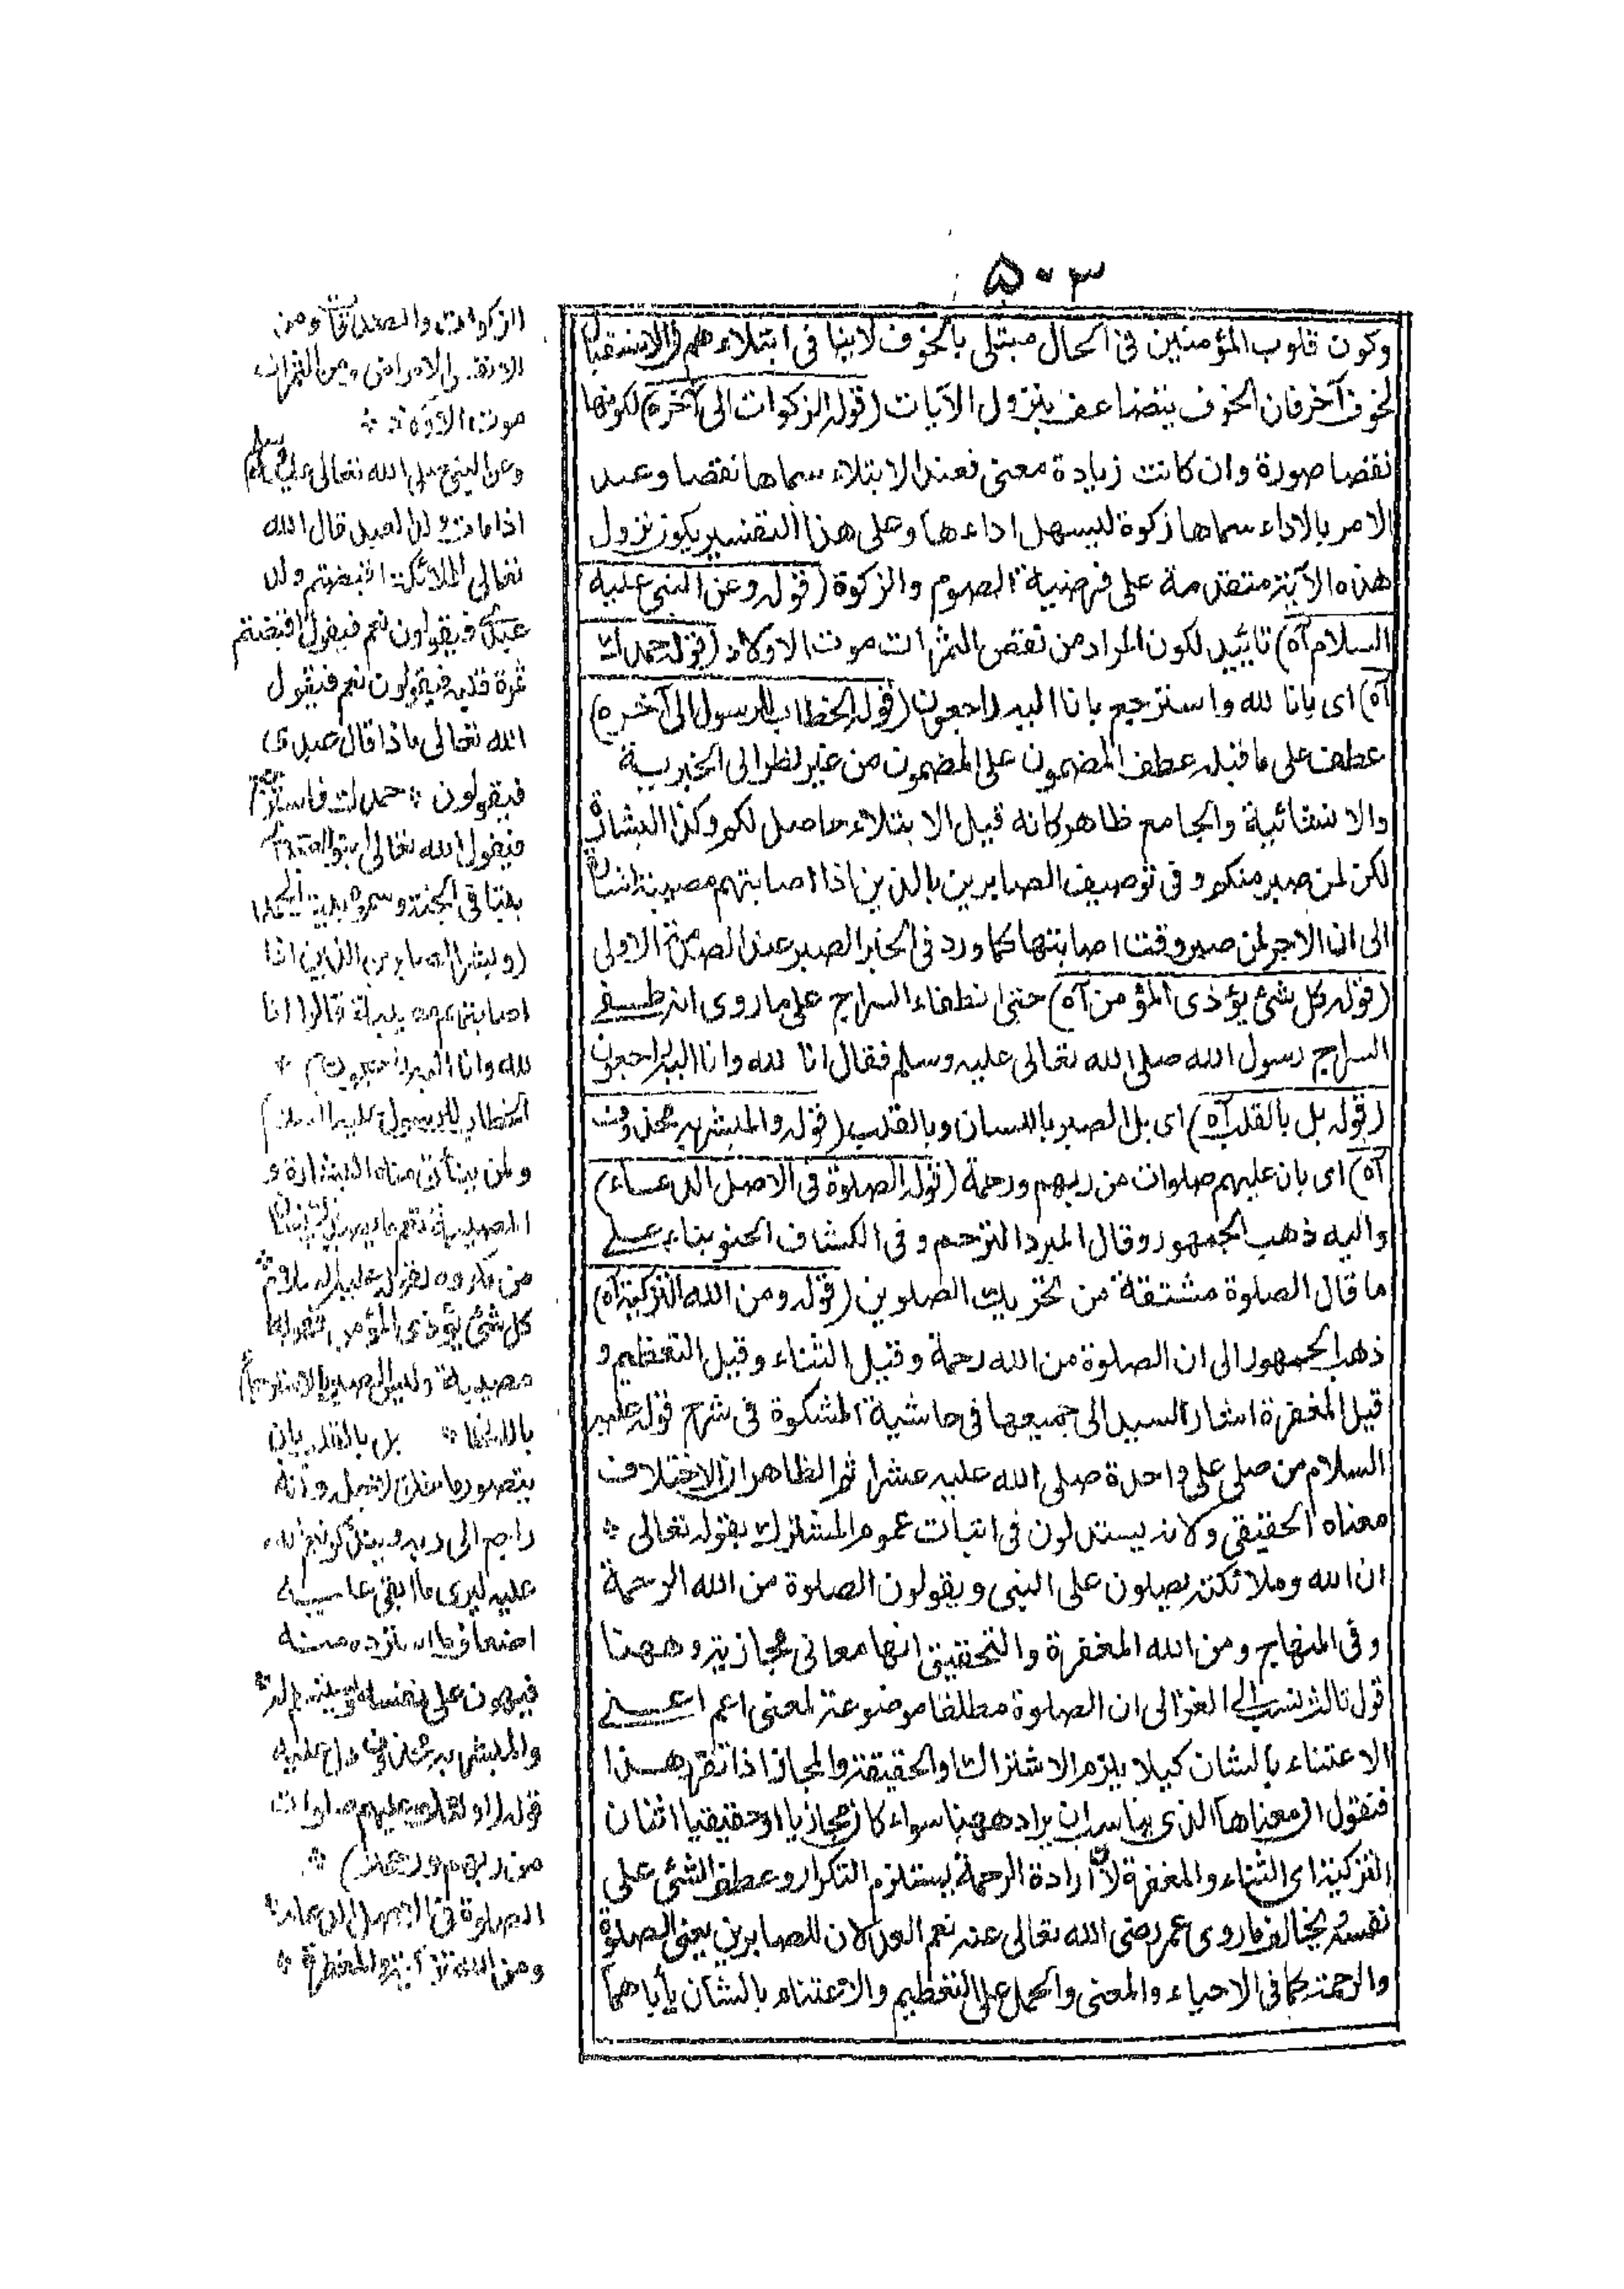 ٥٠٣
وكون قلوب المؤمنين فى الحال مبتلى بالخوف لا ينافى ابتلاءهم فى الاستقبال
لخوف آخر فان الخوف يتضاعف بنزول الآيات (قوله الزكوات الى آخره) لكونها
نقصا صورة وان كانت زيادة معنى فعند الابتلاء سماها نقصا وعند
الامر بالاداء سماها زكوة ليسهل اداءها وعلى هذا التفسير يكون نزول
هذه الآية متقدمة على فرضية الصوم والزكوة (قوله وعن النبى عليه
السلام آه) تائييد لكون المراد من نقص الثمرات موت الاولاد (قوله حمدك
آه) اى بانا لله واسترجع بانا اليه راجعون (قوله الخطاب للرسول الى آخره)
عطف على ما قبله عطف المضمون على المضمون من غير نظر الى الخبرية
والانشائية والجامع ظاهر كانه قيل الابتلاء حاصل لكم وكذا البشارة
لكن لمن صبر منكم وفى توصيف الصابرين بالذين اذا اصابتهم مصيبة اشارة
الى ان الاجر لمن صبر وقت اصابتها كما ورد فى الخبر الصبر عند الصدمة الاولى
(قوله كل شئ يؤذى المؤمن آه) حتى انطفاء السراج على ما روى انه طفئ
السراج رسول الله صلى الله تعالى عليه وسلم فقال انا لله وانا اليه راجعون
(قوله بل بالقلب آه) اى بل الصبر باللسان وبالقلب (قوله والمبشر به محذوف
آه) اى بان عليهم صلوات من ربهم ورحمة (قوله الصلوة فى الاصل الدعاء)
واليه ذهب الجمهور وقال المبرد الترحم وفى الكشاف الحنو بناء على
ما قال الصلوة مشتقة من تحريك الصلوين (قوله ومن الله التزكية آه)
ذهب الجمهور الى ان الصلوة من الله رحمة وقيل الثناء وقيل التعظيم و
قيل المغفرة اشار السيد الى جميعها فى حاشية المشكوة فى شرح قوله عليه
السلام من صلى على واحدة صلى الله عليه عشرا ثم الظاهر ان الاختلاف
معناه الحقيقى ولانه يستدلون فى اثبات عموم المشترك بقوله تعالى *
ان الله وملائكته يصلون على النبى ويقولون الصلوة من الله الرحمة
وفى المنهاج ومن الله المغفرة والتحقيق انها معانى مجازية وههنا
قول ثالث نسب الى الغزالى ان الصلوة مطلقا موضوعة لمعنى اعم اعنى
الاعتناء بالشان كيلا يلزم الاشتراك او الحقيقة والمجاز اذا تقرر هذا
فنقول ان معناها الذى يناسب ان يراد ههنا سواء كان مجازيا او حقيقيا اثنان
التزكية اى الثناء والمغفرة لان ارادة الرحمة يستلزم التكرار وعطف الشئ على
نفسه يخالف ما روى عمر رضى الله تعالى عنه نعم العدلان للصابرين يعنى الصلوة
والرحمة كما فى الاحياء والمعنى والحمل على التعظيم والاعتناء بالشان يأباهما
الزكوات والصدقات ومن
الانفس الامراض ومن الثمرات
موت الاولاد *
وعن النبى صلى الله تعالى عليه وسلم
اذا مات ولد العبد قال الله
تعالى للملائكة اقبضتم ولد
عبدى فيقولون نعم فيقول اقبضتم
ثمرة قلبه فيقولون نعم فيقول
الله تعالى ماذا قال عبدى
فيقولون * حمدك واسترجع
فيقول الله تعالى ابنوا لعبدى
بيتا فى الجنة وسموه بيت الحمد
(وبشر الصابرين الذين اذا
اصابتهم مصيبة قالوا انا
لله وانا اليه راجعون) *
الخطاب للرسول عليه السلام
ولمن يتأتى منه البشارة و
المصيبة تعم ما يصيب الانسان
من مكروه لقوله عليه السلام
كل شئ يؤذى المؤمن فهو له
مصيبة وليس الصبر بالاسترجاع
باللسان * بل بالقلب بان
يتصور ما خلق لاجله وانه
راجع الى ربه ويتذكر نعم الله
عليه ليرى ما ابقى عليه
اضعاف ما استرده منه
فيهون على نفسه ويستسلم له
والمبشر به محذوف دل عليه
قوله (اولئك عليهم صلوات
من ربهم ورحمة) *
الصلوة فى الاصل الدعاء
ومن الله التزكية والمغفرة *